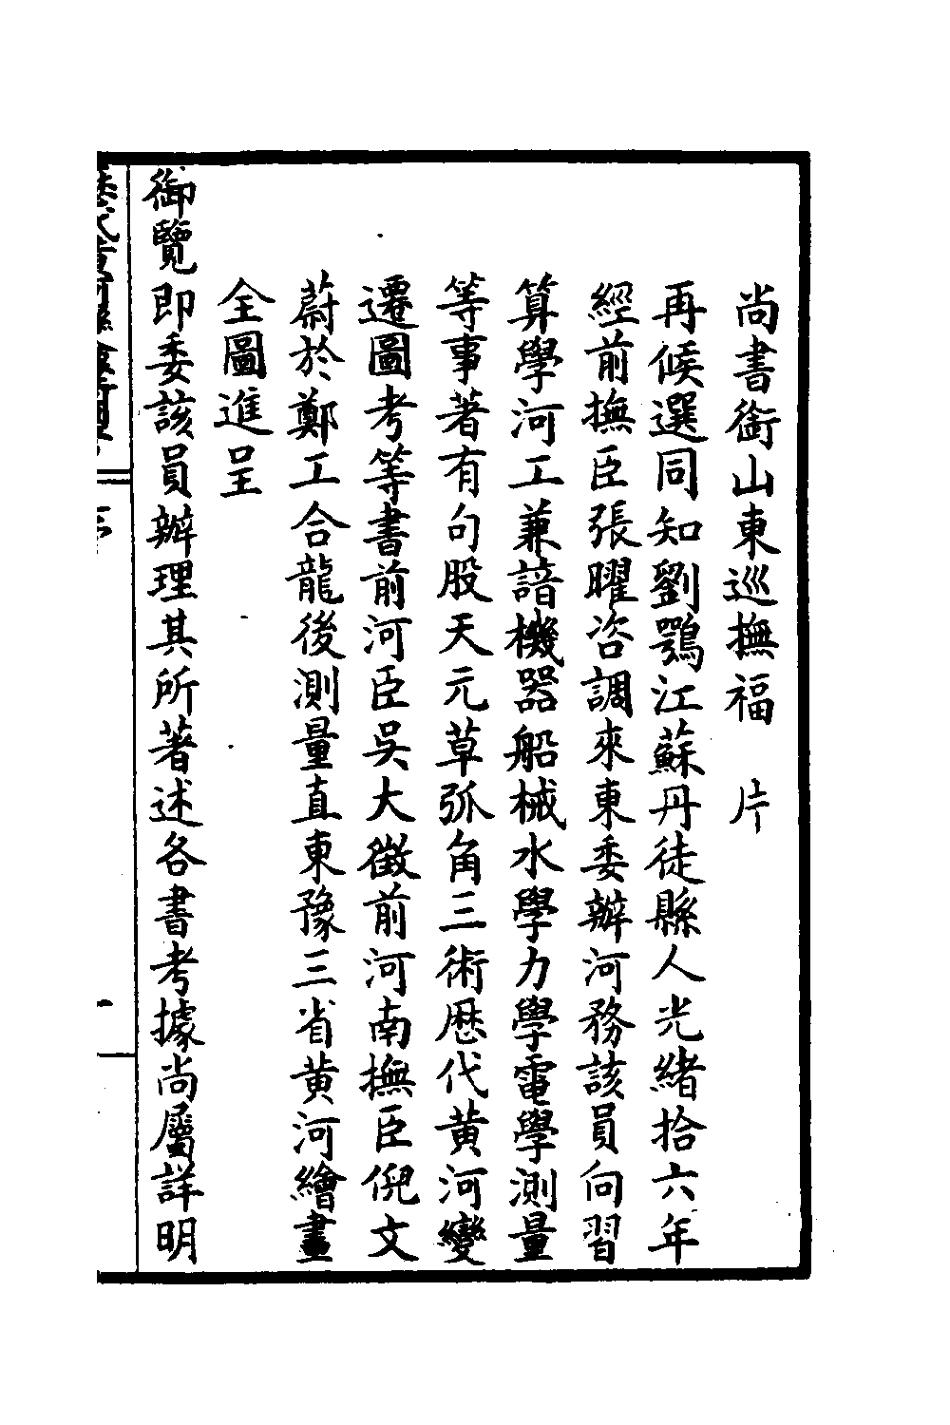 尚書銜山東巡撫福　片
再候選同知劉鶚江蘇丹徒縣人光緒拾六年
經前撫臣張曜咨調來東委辦河務該員向習
算學河工兼諳機器船械水學力學電學測量
等事著有句股天元草弧角三術歷代黃河變
遷圖考等書前河臣吳大徵前河南撫臣倪文
蔚於鄭工合龍後測量直東豫三省黃河繪畫
全圖進呈
御覽即委該員辦理其所著述各書考據尚屬詳明